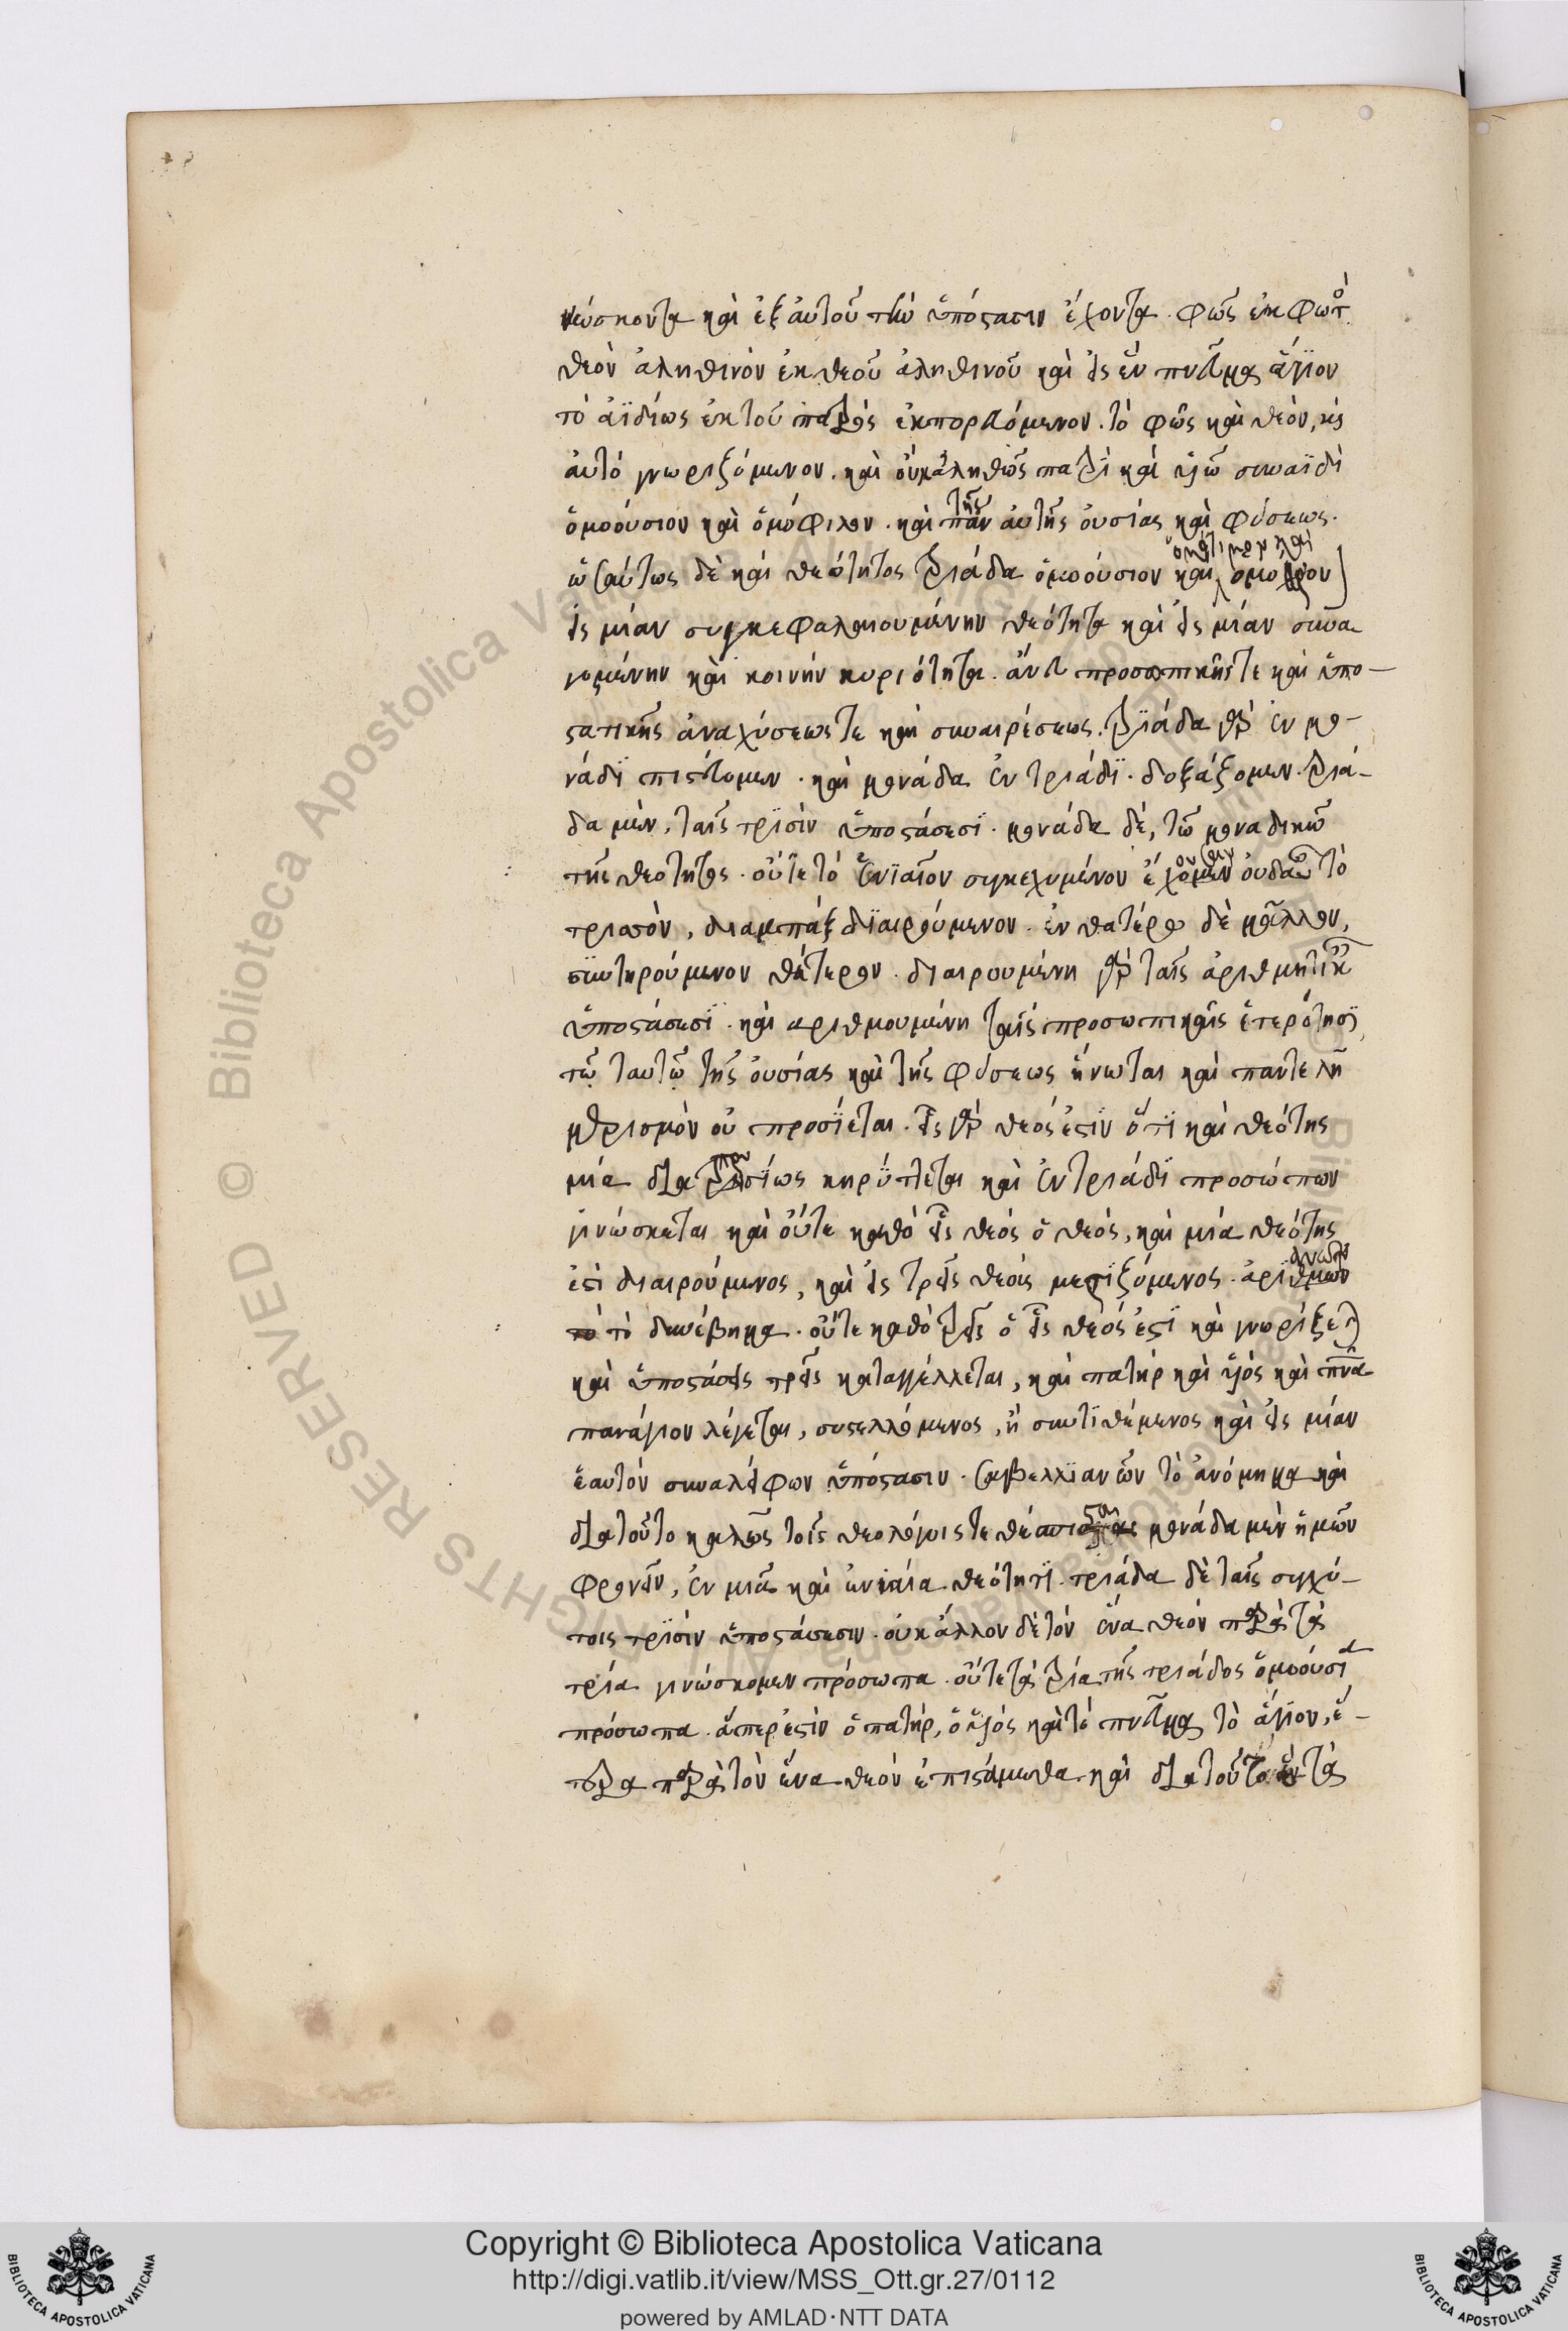 νώσκοντα καὶ ἐξ αὐτοῦ τὴν ὑπόστασιν ἔχοντα. φῶς ἐκ φωτὸ
θεὸν ἀληθινὸν ἐκ θεοῦ ἀληθινοῦ καὶ εἰς ἓν πνεῦμα ἅγιον
τὸ ἀϊδίως ἐκ τοῦ πατρὸς ἐκπορευόμενον. τὸ φῶς καὶ θεὸν, καὶ
αὐτὸ γνωριζόμενον. καὶ ὂν ἀληθῶς πατρὶ καὶ υἱῶ συναΐδι
ὁμοούσιον καὶ ὁμόφιλον. καὶ τῆς αὐτῆς οὐσίας καὶ φύσεως.
ὡσαύτως δὲ καὶ θεότητος τριάδα ὁμοούσιον καὶ ὁμότιμον καὶ ὁμόθρονον
εἰς μίαν συγκεφαλαιουμένην θεότητα καὶ εἰς μίαν συνα
γομένην καὶ κοινὴν κυριότητα. ἄνευ προσωπικῆς τε καὶ ὑπο-
στατικῆς ἀναχύσεώς τε καὶ συναιρέσεως. τριάδα γὰρ ἐν μο-
νάδϊ πιστεύομεν. καὶ μονάδα ἐν τριάδϊ. δοξάζομεν. τριά-
δα μὲν, ταῖς τρϊσὶν ὑποστάσεσϊ. μονάδα δὲ, τῶ μοναδικῶ
τῆς θεότητος. οὔτε τὸ ἑνϊαῖον συγκεχυμένον ἔχομεν οὐδαὖ τὸ
τρισσὸν, διαμπὰξ δϊαιρούμενον. ἐν θατέρω δὲ μᾶλλον,
συντηρούμενον θάτερον. διαιρουμένη γὰρ ταῖς ἀριθμητικ
ὑποστάσεσϊ. καὶ αριθμουμένη ταῖς προσωπικαῖς ἑτερότησϊ
τῶ ταυτῶ τῆς οὐσίας καὶ τῆς φύσεως ἥνωται καὶ παντελῆ
μερισμὸν οὐ προσΐεται. εἷς γὰρ θεός ἐστϊν ὅτϊ καὶ θεότης
μία διαπρυσϊως κηρύττεται καὶ ἐν τριάδϊ προσώπων
γινώσκεται καὶ οὔτε καθὸ εἷς θεὸς ὁ θεὸς, καὶ μία θεότης
ἐστὶ διαιρούμενος, καὶ εἰς τρεῖς θεοὺς μεριζόμενος. ἀρειανῶν
τὸ δυσέβημα. οὔτε καθὸ τρεῖς ὁ εἷς θεός ἐστϊ καὶ γνωρίζεται
καὶ ὑποστάσεις τρεῖς καταγγέλλεται, καὶ πατὴρ καὶ υἱὸς καὶ πνα
πανάγιον λέγεται, συστελλόμενος, ἢ συντιθέμενος καὶ εἰς μίαν
ἑαυτὸν συναλείφων ὑπόστασιν. σαβελλϊανῶν τὸ ἀνόμημα καὶ
διατοῦτο καλῶς τοῖς θεολόγοις τεθέσπισται μονάδα μὲν ἡμῶν
φρονεῖν, ἐν μιᾶ καὶ ἑνιαία θεότητϊ. τριάδα δὲ ταῖς συγχύ-
τοις τρϊσὶν ὑποστάσεσιν. οὐκ ἄλλον δὲ τὸν ἕνα θεὸν παρὰ τὰ
τρία γινώσκομεν πρόσωπα. οὔτε τὰ τρία τῆς τριάδος ὁμοούσια
πρόσωπα. ἅπερ ἐστὶν ὁ πατὴρ, ὁ υἱὸς καὶ τὸ πνεῦμα τὸ ἅγιον, ἕ-
τερα παρὰ τὸν ἕνα θεὸν ἐπιστάμεθα καὶ διατοῦτο ἓν τὰ
Copyright © Biblioteca Apostolica Vaticana
http://digi.vatlib.it/view/MSS_Ott.gr.27/0112
powered by AMLAD·NTT DATA